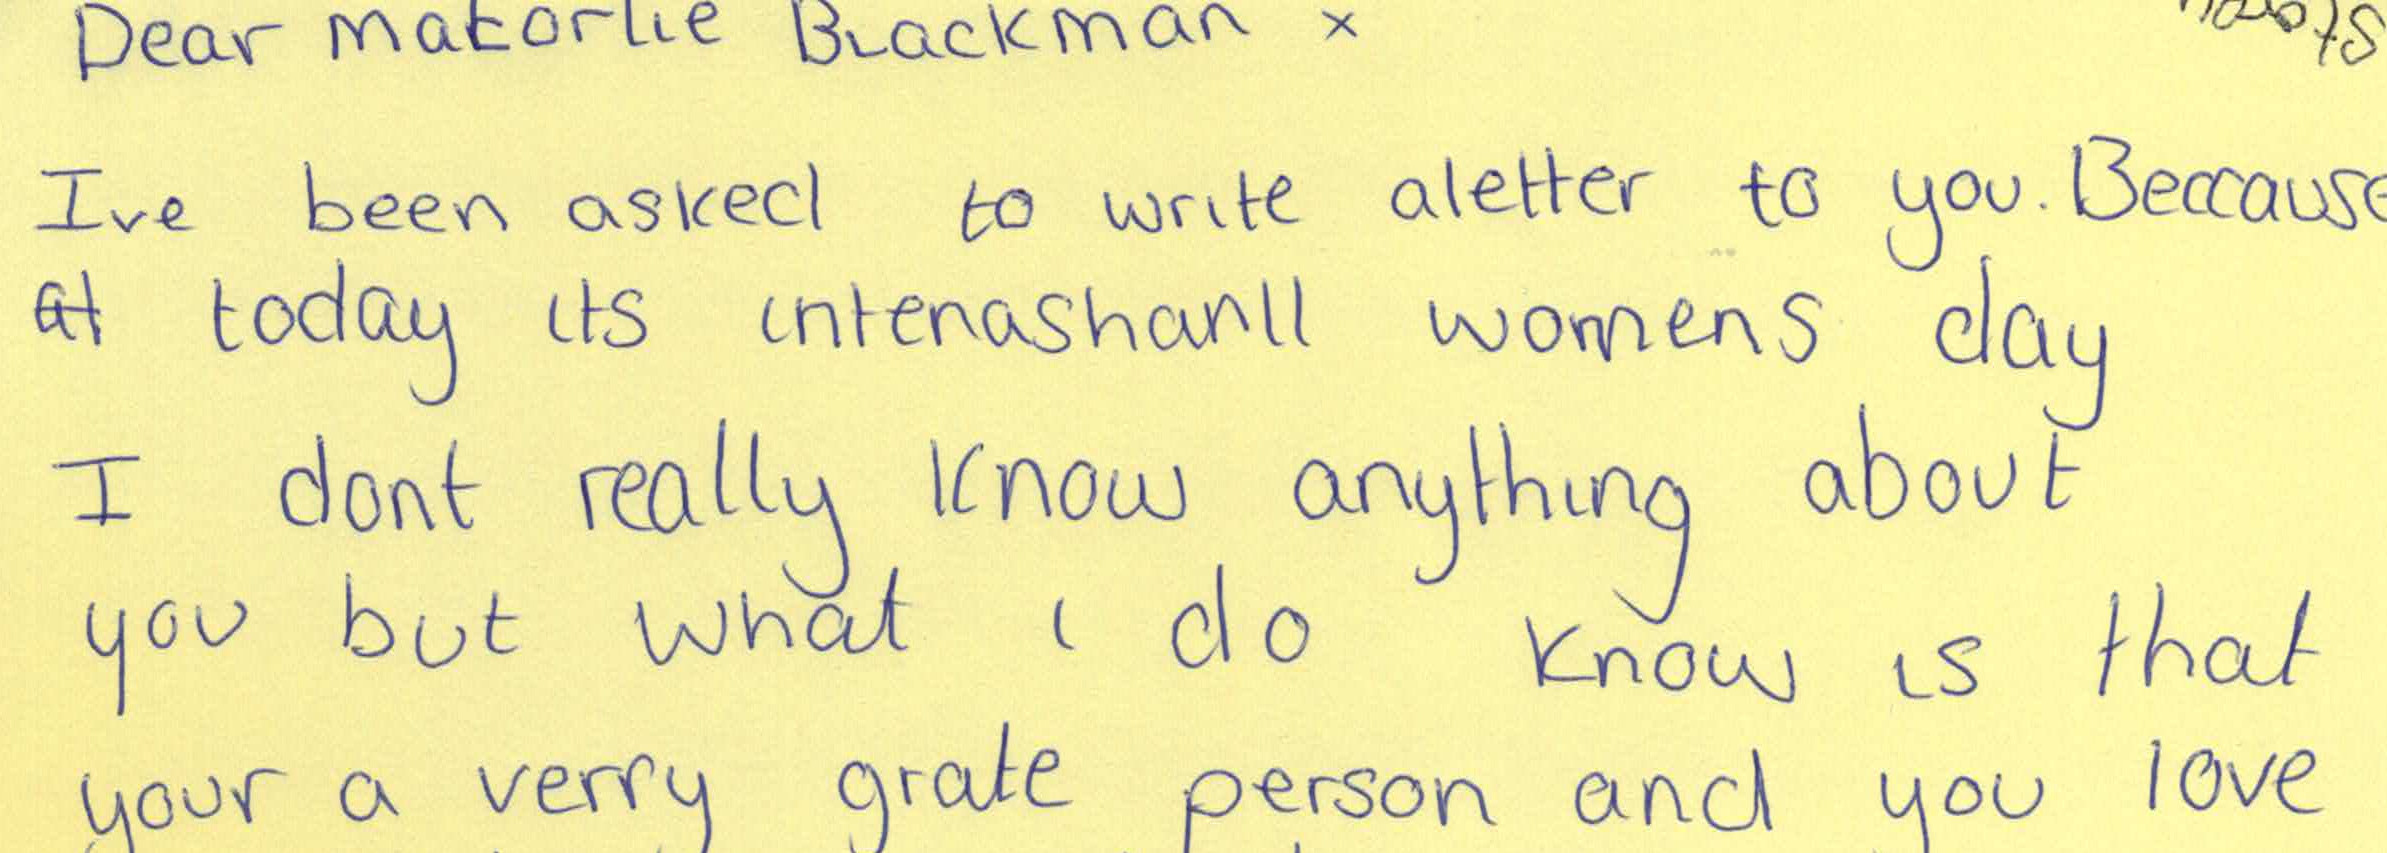 Dear Matorlie Blackman x
Ive been asked to write aletter to you. Beccause
at today its intenashanll womens day
I dont really know anything about
you but what i do know is that
your a verry grate person and you love